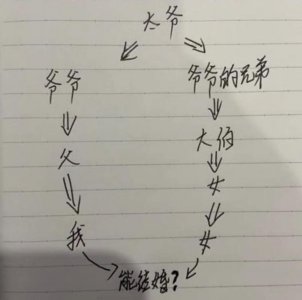 太爷
爷爷 爷爷的兄弟
父 大伯
女
我 女
能结婚?